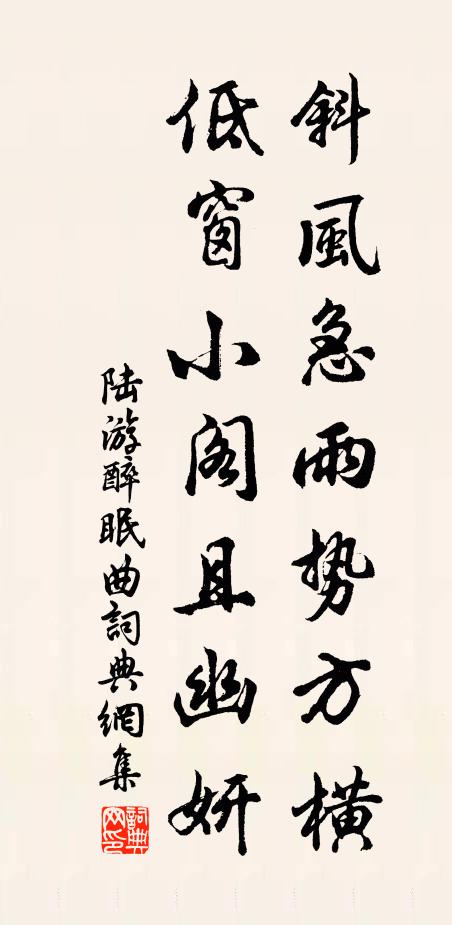 斜風急雨勢方橫
低窗小閣且幽妍
陆游醉眠曲詞典網集
詞典網印